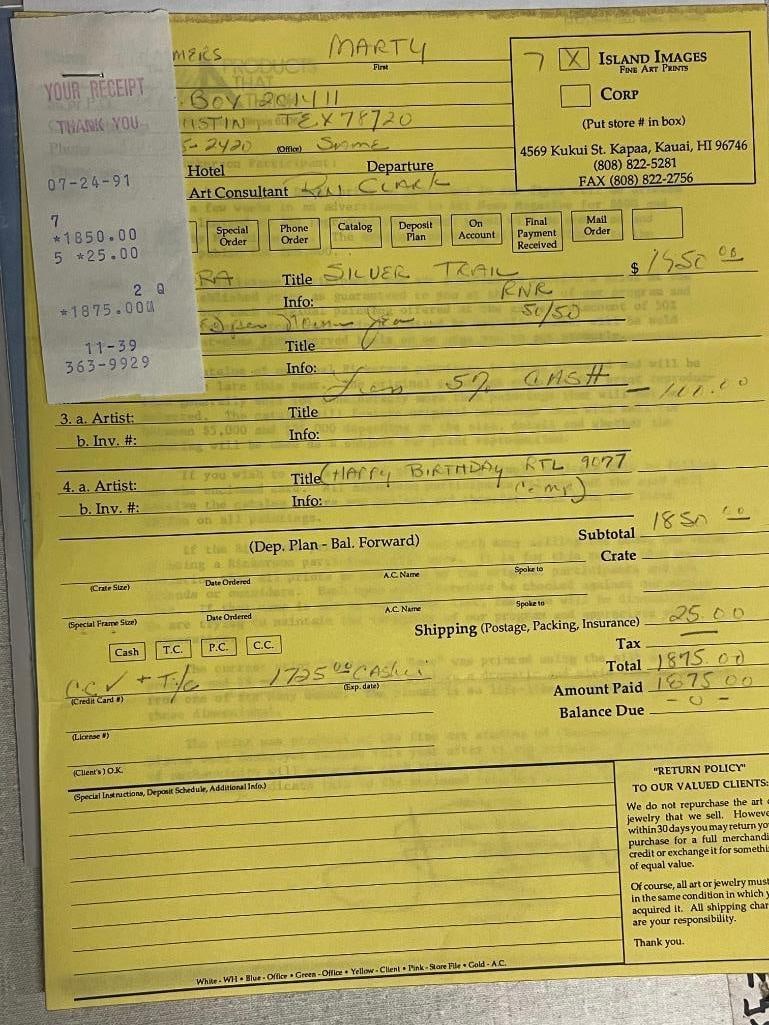 YOUR RECEIPT
THANK YOU
07-24-91
7
*1850.00
5 *25.00
2 Q
*1875.00
11-39
363-9929
MERS MARTY
First
BOX 201411
STIN TEX 78720
5-2420 (Office) SAME
Hotel Departure
Art Consultant CLARK
7 X ISLAND IMAGES
FINE ART PRINTS
CORP
(Put store # in box)
4569 Kukui St. Kapaa, Kauai, HI 96746
(808) 822-5281
FAX (808) 822-2756
Special Order
Phone Order
Catalog
Deposit Plan
On Account
Final Payment Received
Mail Order
RA Title SILVER TRAIL $ 1950 00
Info: RNR
50/50
Title
Info:
5% CASH - 100.00
3. a. Artist: Title
b. Inv. #: Info:
4. a. Artist: Title (HAPPY BIRTHDAY RTL 9077
b. Inv. #: Info: Comp)
(Dep. Plan - Bal. Forward) Subtotal 1850 00
Crate
(Crate Size) Date Ordered A.C. Name Spoke to
(Special Frame Size) Date Ordered A.C. Name Spoke to
Shipping (Postage, Packing, Insurance) 25.00
Cash T.C. P.C. C.C.
Tax
Total 1875.00
CC ✓ + T/C 1725 00
(Credit Card #) (Exp. date)
Amount Paid 1875 00
Balance Due - 0 -
(License #)
(Client's) O.K.
(Special Instructions, Deposit Schedule, Additional Info.)
"RETURN POLICY"
TO OUR VALUED CLIENTS:
We do not repurchase the art
jewelry that we sell. Howeve
within 30 days you may return yo
purchase for a full merchandi
credit or exchange it for somethi
of equal value.
Of course, all art or jewelry must
in the same condition in which y
acquired it. All shipping char
are your responsibility.
Thank you.
White - WH • Blue - Office • Green - Office • Yellow - Client • Pink - Store File • Gold - A.C.